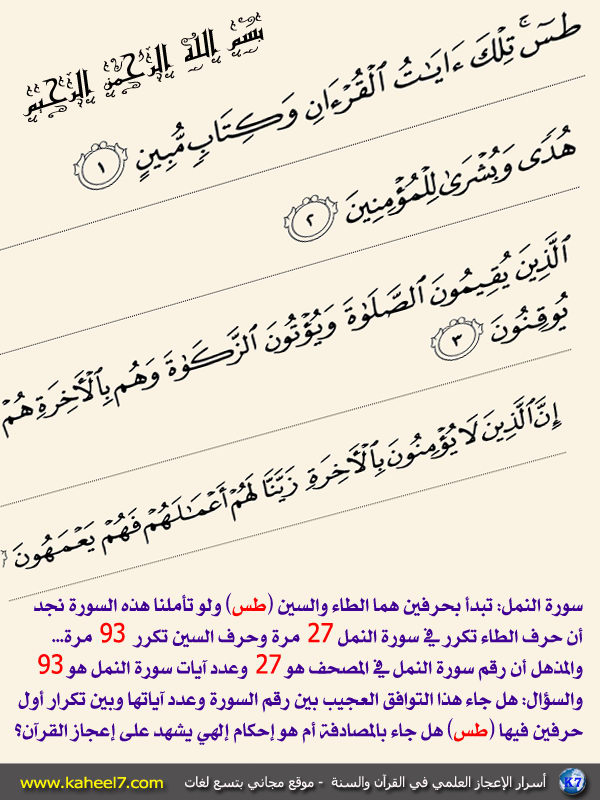 بِسْمِ اللَّهِ الرَّحْمَٰنِ الرَّحِيمِ
طسٓ ۚ تِلْكَ ءَايَٰتُ ٱلْقُرْءَانِ وَكِتَابٍ مُّبِينٍ ١
هُدًى وَبُشْرَىٰ لِلْمُؤْمِنِينَ ٢
ٱلَّذِينَ يُقِيمُونَ ٱلصَّلَوٰةَ وَيُؤْتُونَ ٱلزَّكَوٰةَ وَهُم بِٱلْأَخِرَةِ هُمْ
يُوقِنُونَ ٣
إِنَّ ٱلَّذِينَ لَا يُؤْمِنُونَ بِٱلْأَخِرَةِ زَيَّنَّا لَهُمْ أَعْمَٰلَهُمْ فَهُمْ يَعْمَهُونَ
سورة النمل: تبدأ بحرفين هما الطاء والسين (طس) ولو تأملنا هذه السورة نجد
أن حرف الطاء تكرر في سورة النمل 27 مرة وحرف السين تكرر 93 مرة...
والمذهل أن رقم سورة النمل في المصحف هو 27 وعدد آيات سورة النمل هو 93
والسؤال: هل جاء هذا التوافق العجيب بين رقم السورة وعدد آياتها وبين تكرار أول
حرفين فيها (طس) هل جاء بالمصادفة أم هو إحكام إلهي يشهد على إعجاز القرآن؟
K7 أسرار الإعجاز العلمي في القرآن والسنة - موقع مجاني بتسع لغات www.kaheel7.com